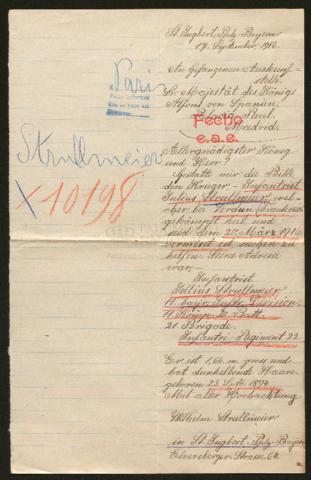 St. Ingbert, Pfalz-Bayern
17. September, 1916.
An Gefangenen Auskunft-
stelle.
Sr. Majestät des Königs
Alfons von Spanien.
Palacio Real.
Madrid.
Fecho
e.a.e.
Paris
Strullmeier
X 10198
Allergnädigster König
und Herr!
Gestatte mir die Bitte
den Krieger - Infantrist
Julius Strullmeier, wel-
cher bei Verdun Frankreich
gekämpft hat und
seid dem 27. März 1916
vermisst ist suchen zu
helfen. Seine Adresse
war -
Infantrist
Julius Strullmeier
11. bayr. Division.
21 Brigade.
Infantri Regiment 22
Er ist 1,66 m. gross und
hat dunkelblonde Haare
geboren 23. 1894
Mit aller Hochachtung
Wilhelm Strullmeier
in St Ingbert, Pfalz-Bayern
Elversberger-Strasse. 64.